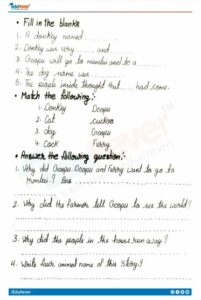 Edufever
• Fill in the blanks
1. A donkey named ..........
2. Donkey was very ...... and ......
3. Googoo will go to mumbai and be a ......
4. The dog name was ..........
5. The people inside thought that ...... had come.
• Match the following :-
1. Donkey Doogoo
2. Cat cuckoo
3. dog Googoo
4. Cock Furry
• Answer the following question :-
1. Why did Googoo, Doogoo and Furry want to go to
Mumbai ?
2. Why did the Farmer tell Googoo to see the world?
3. Why did the people in the hours run away?
4. Write four animal name of this story?
/Edufever